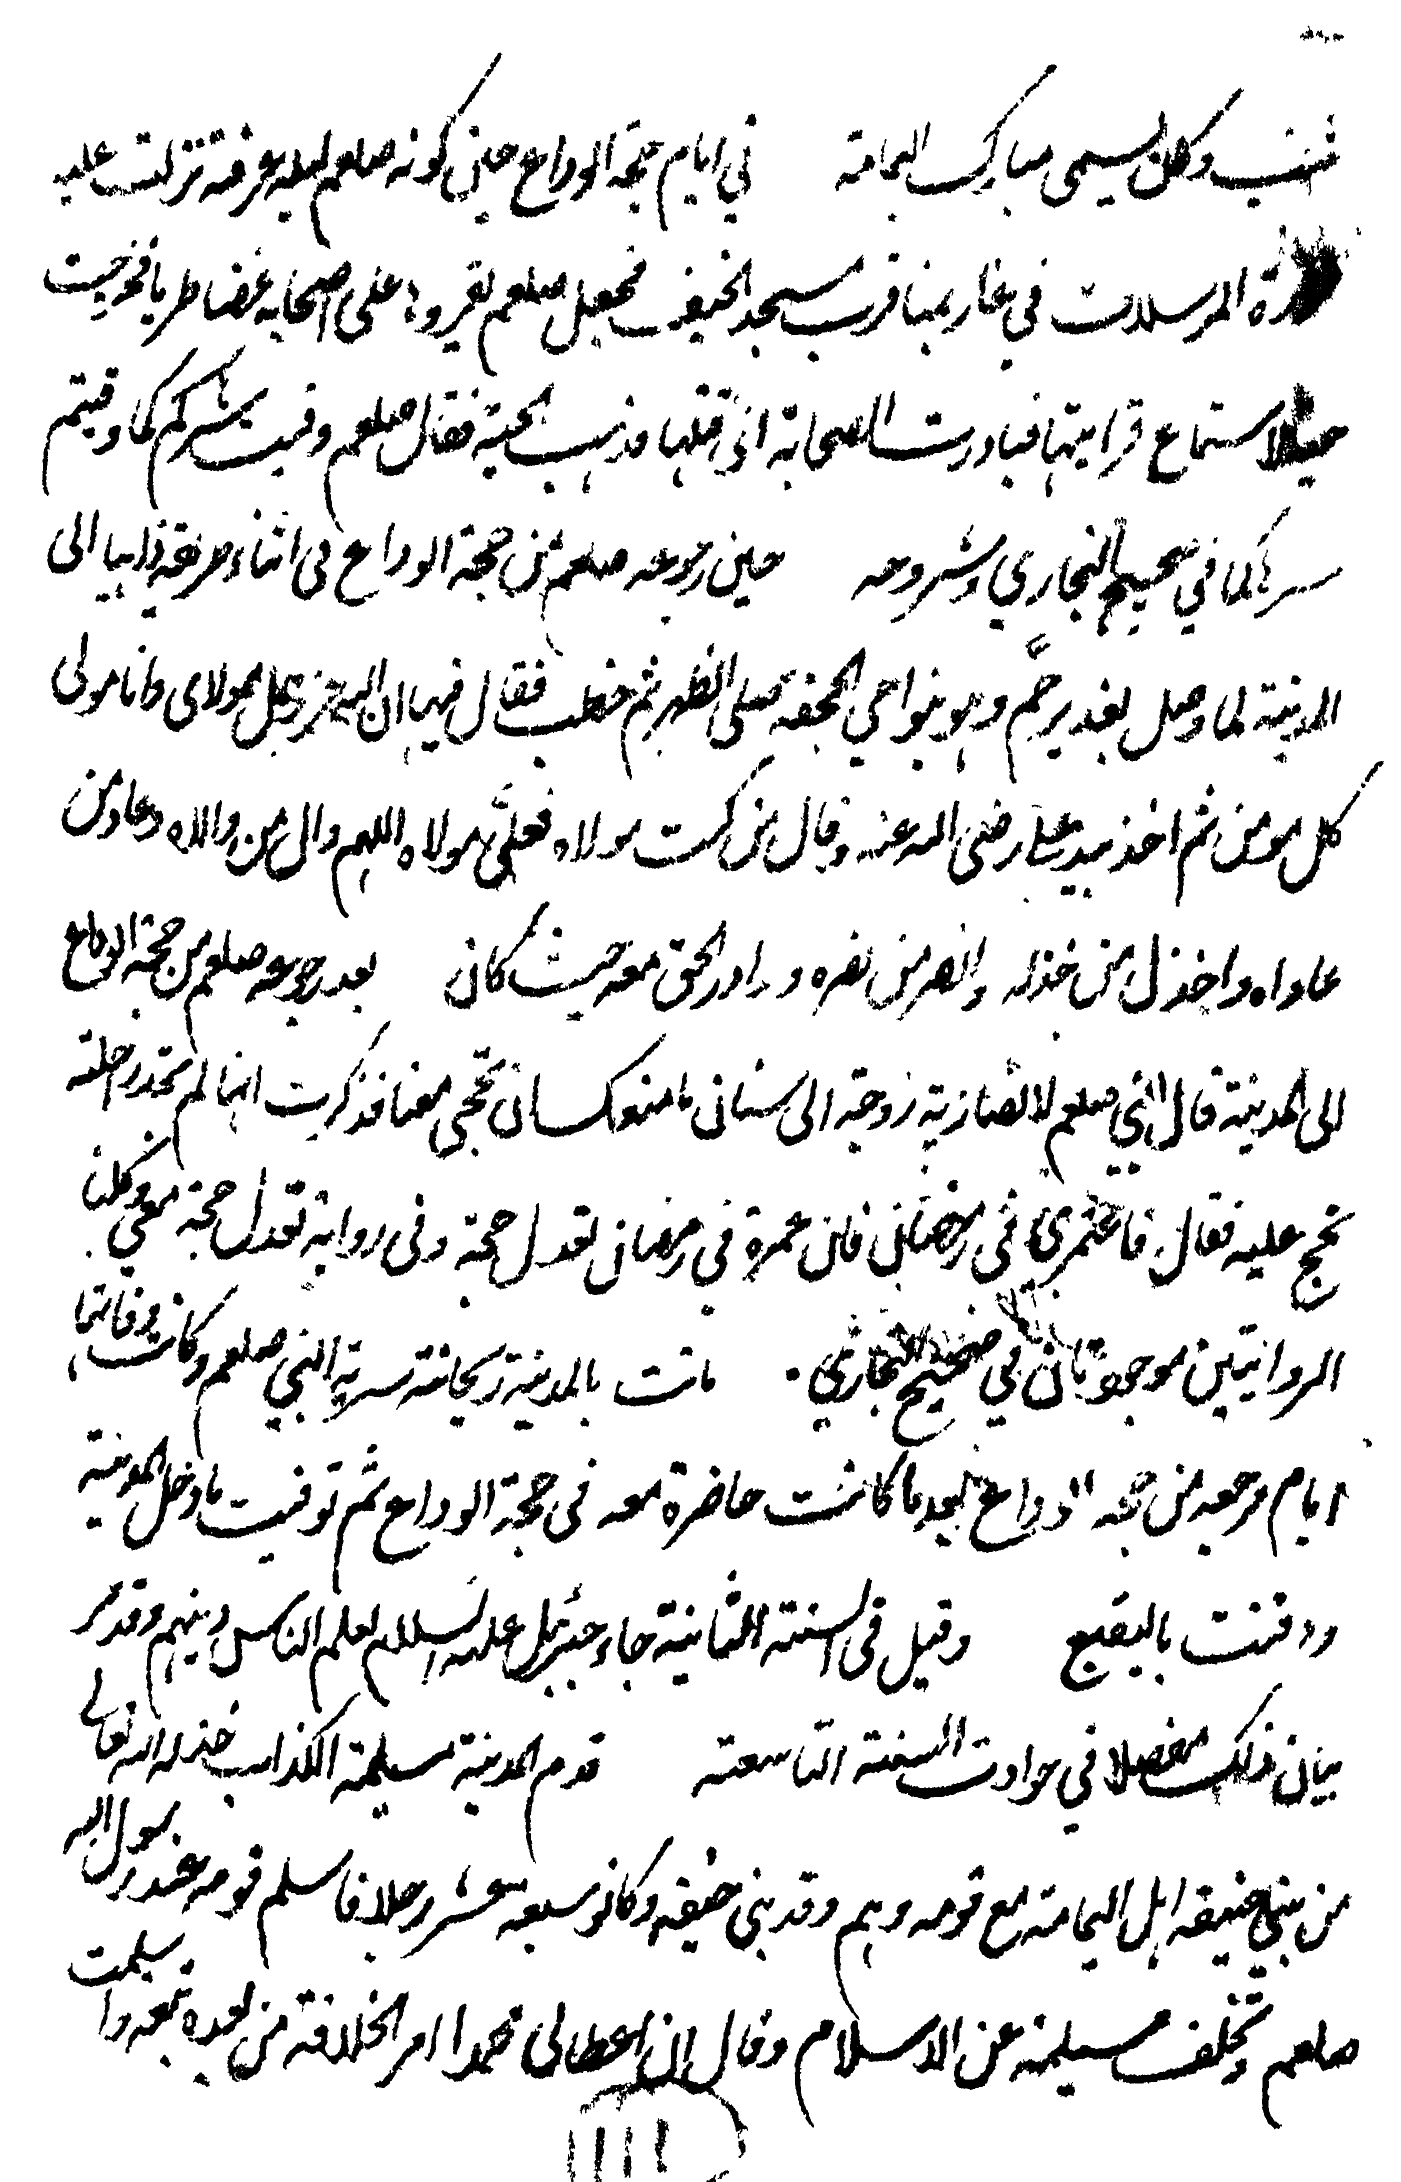 شب وكان يسمى مبارك اليمامة في ايام حجة الوداع حين كونه صلعم ليله عرفة نزلت عليه
المرسلات في غار بمنا قرب مسجد الخيف فجعل صلعم يقروها على اصحابه غضا طريا فخرجت
حية لاستماع قرايتها فبادرت الصحابة الى قتلها فذهبت الحية فقال صلعم وقيت شركم كما وقيتم
شرها كما في صحيح البخاري وشروحه حين رجوعه صلعم من حجة الوداع فى اثناء طريقه ذاهبا الى
المدينة لما وصل بغدير خم وهو بنواحي الجحفه صلى الظهر ثم خطب فقال فيها ان الله عز وجل مولاى وانا مولى
كل مومن ثم اخذ بيد على رضى الله عنه وقال من كنت مولاه فعليّ مولاه اللهم وال من والاه وعاد من
عاداه واخذل من خذله وانصر من نصره وادر الحق معه حيث كان بعد رجوعه صلعم من حجة الوداع
الى المدينة قال النبي صلعم لانصارية زوجة ابى سنان ما منعك ان تحجى معنا فذكرت انها لم تجد راحلة
تحج عليه فقال فاعتمري في رمضان فان عمرة في رمضان تعدل حجة وفى رواية تعدل حجة معي وكلتا
الروايتين موجودتان في صحيح البخاري . ماتت بالمدينة ريحانة سرية النبي صلعم وكانت وفاتها
ايام مرجعه من حجة الوداع بعد ما كانت حاضرة معه فى حجة الوداع ثم توفيت ما دخل المدينة
ودفنت بالبقيع وقيل فى السنة الثانية جاء جبرئيل عليه السلام لعلم الناس دينهم وقد مر
بيان ذلك مفصلا في حوادث السنة التاسعة قدم المدينة مسيلمة الكذاب خذله الله تعالى
من بني حنيفه اهل اليمامة مع قومه وهم وفد بنى حنيفه وكانوا سبعة عشر رجلا فاسلم قومه عند رسول الله
صلعم وتخلف مسيلمة عن الاسلام وقال ان اعطالى محمدا امر الخلافة من بعده تبعه واسلمت